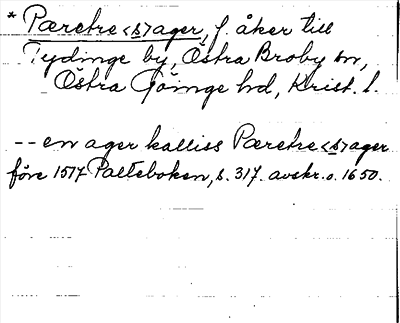 * Pæretre<s>ager, f. åker till
Tydinge by, Östra Broby sn,
Östra Göinge hd, Krist. l.
-- en ager kalliss Pæretre<s>ager
före 1517 Palteboken, s. 317. avskr. o. 1650.